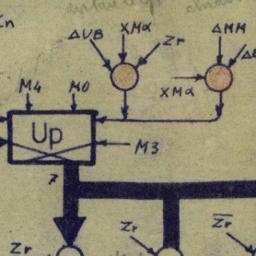 ΔUB XMα Zr ΔMM
XMα
M4 M0
Up
M3
7
Zr Zr Z̅r̅